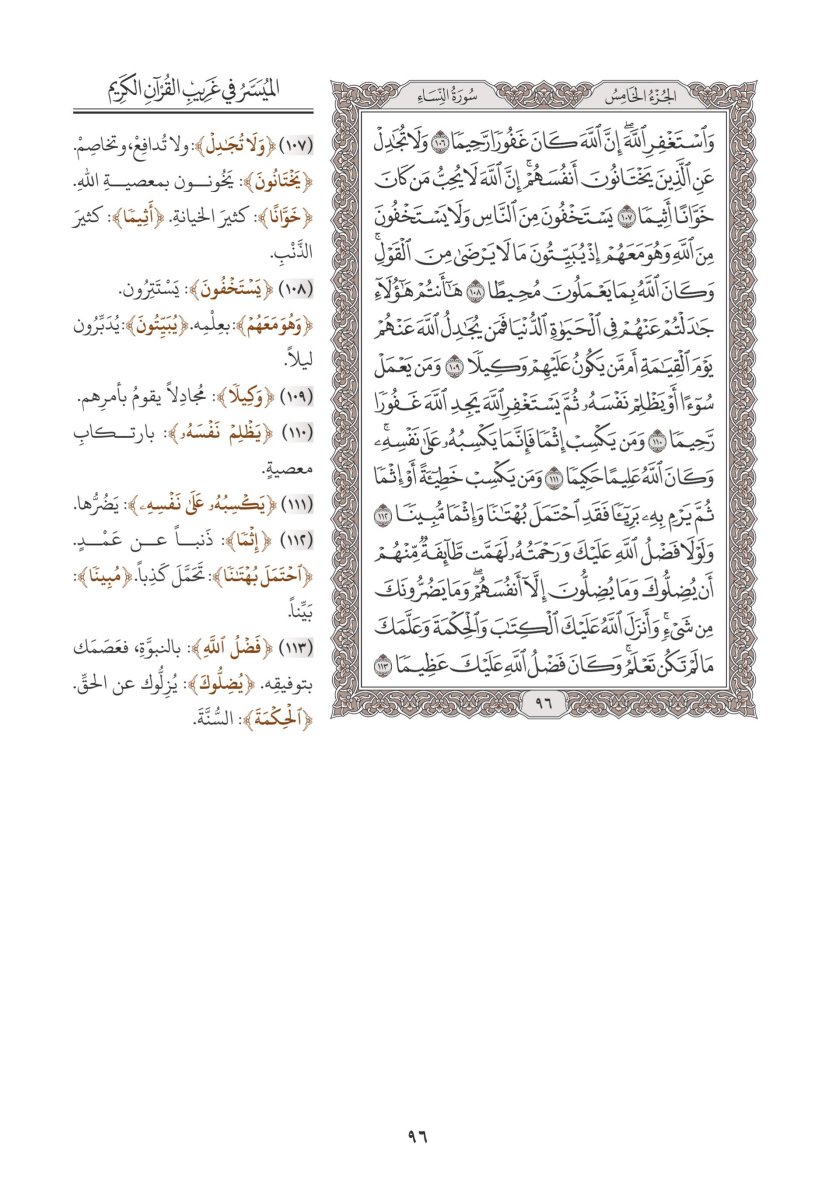 الجُزْءُ الخَامِسُ
سُورَةُ النِّسَاءِ
وَٱسْتَغْفِرِ ٱللَّهَۖ إِنَّ ٱللَّهَ كَانَ غَفُورٗا رَّحِيمٗا ١٠٦ وَلَا تُجَٰدِلۡ
عَنِ ٱلَّذِينَ يَخۡتَانُونَ أَنفُسَهُمۡۚ إِنَّ ٱللَّهَ لَا يُحِبُّ مَن كَانَ
خَوَّانًا أَثِيمٗا ١٠٧ يَسۡتَخۡفُونَ مِنَ ٱلنَّاسِ وَلَا يَسۡتَخۡفُونَ
مِنَ ٱللَّهِ وَهُوَ مَعَهُمۡ إِذۡ يُبَيِّتُونَ مَا لَا يَرۡضَىٰ مِنَ ٱلۡقَوۡلِۚ
وَكَانَ ٱللَّهُ بِمَا يَعۡمَلُونَ مُحِيطًا ١٠٨ هَٰٓأَنتُمۡ هَٰٓؤُلَآءِ
جَٰدَلۡتُمۡ عَنۡهُمۡ فِي ٱلۡحَيَوٰةِ ٱلدُّنۡيَا فَمَن يُجَٰدِلُ ٱللَّهَ عَنۡهُمۡ
يَوۡمَ ٱلۡقِيَٰمَةِ أَم مَّن يَكُونُ عَلَيۡهِمۡ وَكِيلٗا ١٠٩ وَمَن يَعۡمَلۡ
سُوٓءًا أَوۡ يَظۡلِمۡ نَفۡسَهُۥ ثُمَّ يَسۡتَغۡفِرِ ٱللَّهَ يَجِدِ ٱللَّهَ غَفُورٗا
رَّحِيمٗا ١١٠ وَمَن يَكۡسِبۡ إِثۡمٗا فَإِنَّمَا يَكۡسِبُهُۥ عَلَىٰ نَفۡسِهِۦۚ
وَكَانَ ٱللَّهُ عَلِيمًا حَكِيمٗا ١١١ وَمَن يَكۡسِبۡ خَطِيٓـَٔةً أَوۡ إِثۡمٗا
ثُمَّ يَرۡمِ بِهِۦ بَرِيٓـٔٗا فَقَدِ ٱحۡتَمَلَ بُهۡتَٰنٗا وَإِثۡمٗا مُّبِينٗا ١١٢
وَلَوۡلَا فَضۡلُ ٱللَّهِ عَلَيۡكَ وَرَحۡمَتُهُۥ لَهَمَّت طَّآئِفَةٞ مِّنۡهُمۡ
أَن يُضِلُّوكَ وَمَا يُضِلُّونَ إِلَّآ أَنفُسَهُمۡۖ وَمَا يَضُرُّونَكَ
مِن شَيۡءٖۚ وَأَنزَلَ ٱللَّهُ عَلَيۡكَ ٱلۡكِتَٰبَ وَٱلۡحِكۡمَةَ وَعَلَّمَكَ
مَا لَمۡ تَكُن تَعۡلَمُۚ وَكَانَ فَضۡلُ ٱللَّهِ عَلَيۡكَ عَظِيمٗا ١١٣
٩٦
المُيَسَّرُ في غَرِيبِ القُرْآنِ الكَرِيم
(١٠٧) ﴿وَلَا تُجَٰدِلۡ﴾: ولا تُدافِعْ، وتخاصِمْ.
﴿يَخۡتَانُونَ﴾: يخُونـون بمعصيـةِ اللهِ.
﴿خَوَّانًا﴾: كثيرَ الخيانةِ. ﴿أَثِيمٗا﴾: كثيرَ
الذَّنْبِ.
(١٠٨) ﴿يَسۡتَخۡفُونَ﴾: يَسْتَتِرُون.
﴿وَهُوَ مَعَهُمۡ﴾: بعِلْمِه. ﴿يُبَيِّتُونَ﴾: يُدَبِّرُون
ليلاً.
(١٠٩) ﴿وَكِيلٗا﴾: مُجادِلاً يقومُ بأمرِهم.
(١١٠) ﴿يَظۡلِمۡ نَفۡسَهُۥ﴾: بارتـكـابِ
معصيةٍ.
(١١١) ﴿يَكۡسِبُهُۥ عَلَىٰ نَفۡسِهِۦ﴾: يَضُرُّها.
(١١٢) ﴿إِثۡمٗا﴾: ذَنبـاً عـن عَمْـدٍ.
﴿ٱحۡتَمَلَ بُهۡتَٰنٗا﴾: تَحَمَّلَ كَذِباً. ﴿مُّبِينٗا﴾:
بَيِّناً.
(١١٣) ﴿فَضۡلُ ٱللَّهِ﴾: بالنبوَّةِ، فعَصَمَك
بتوفيقِه. ﴿يُضِلُّوكَ﴾: يُزِلُّوك عن الحقِّ.
﴿ٱلۡحِكۡمَةَ﴾: السُّنَّةَ.
٩٦